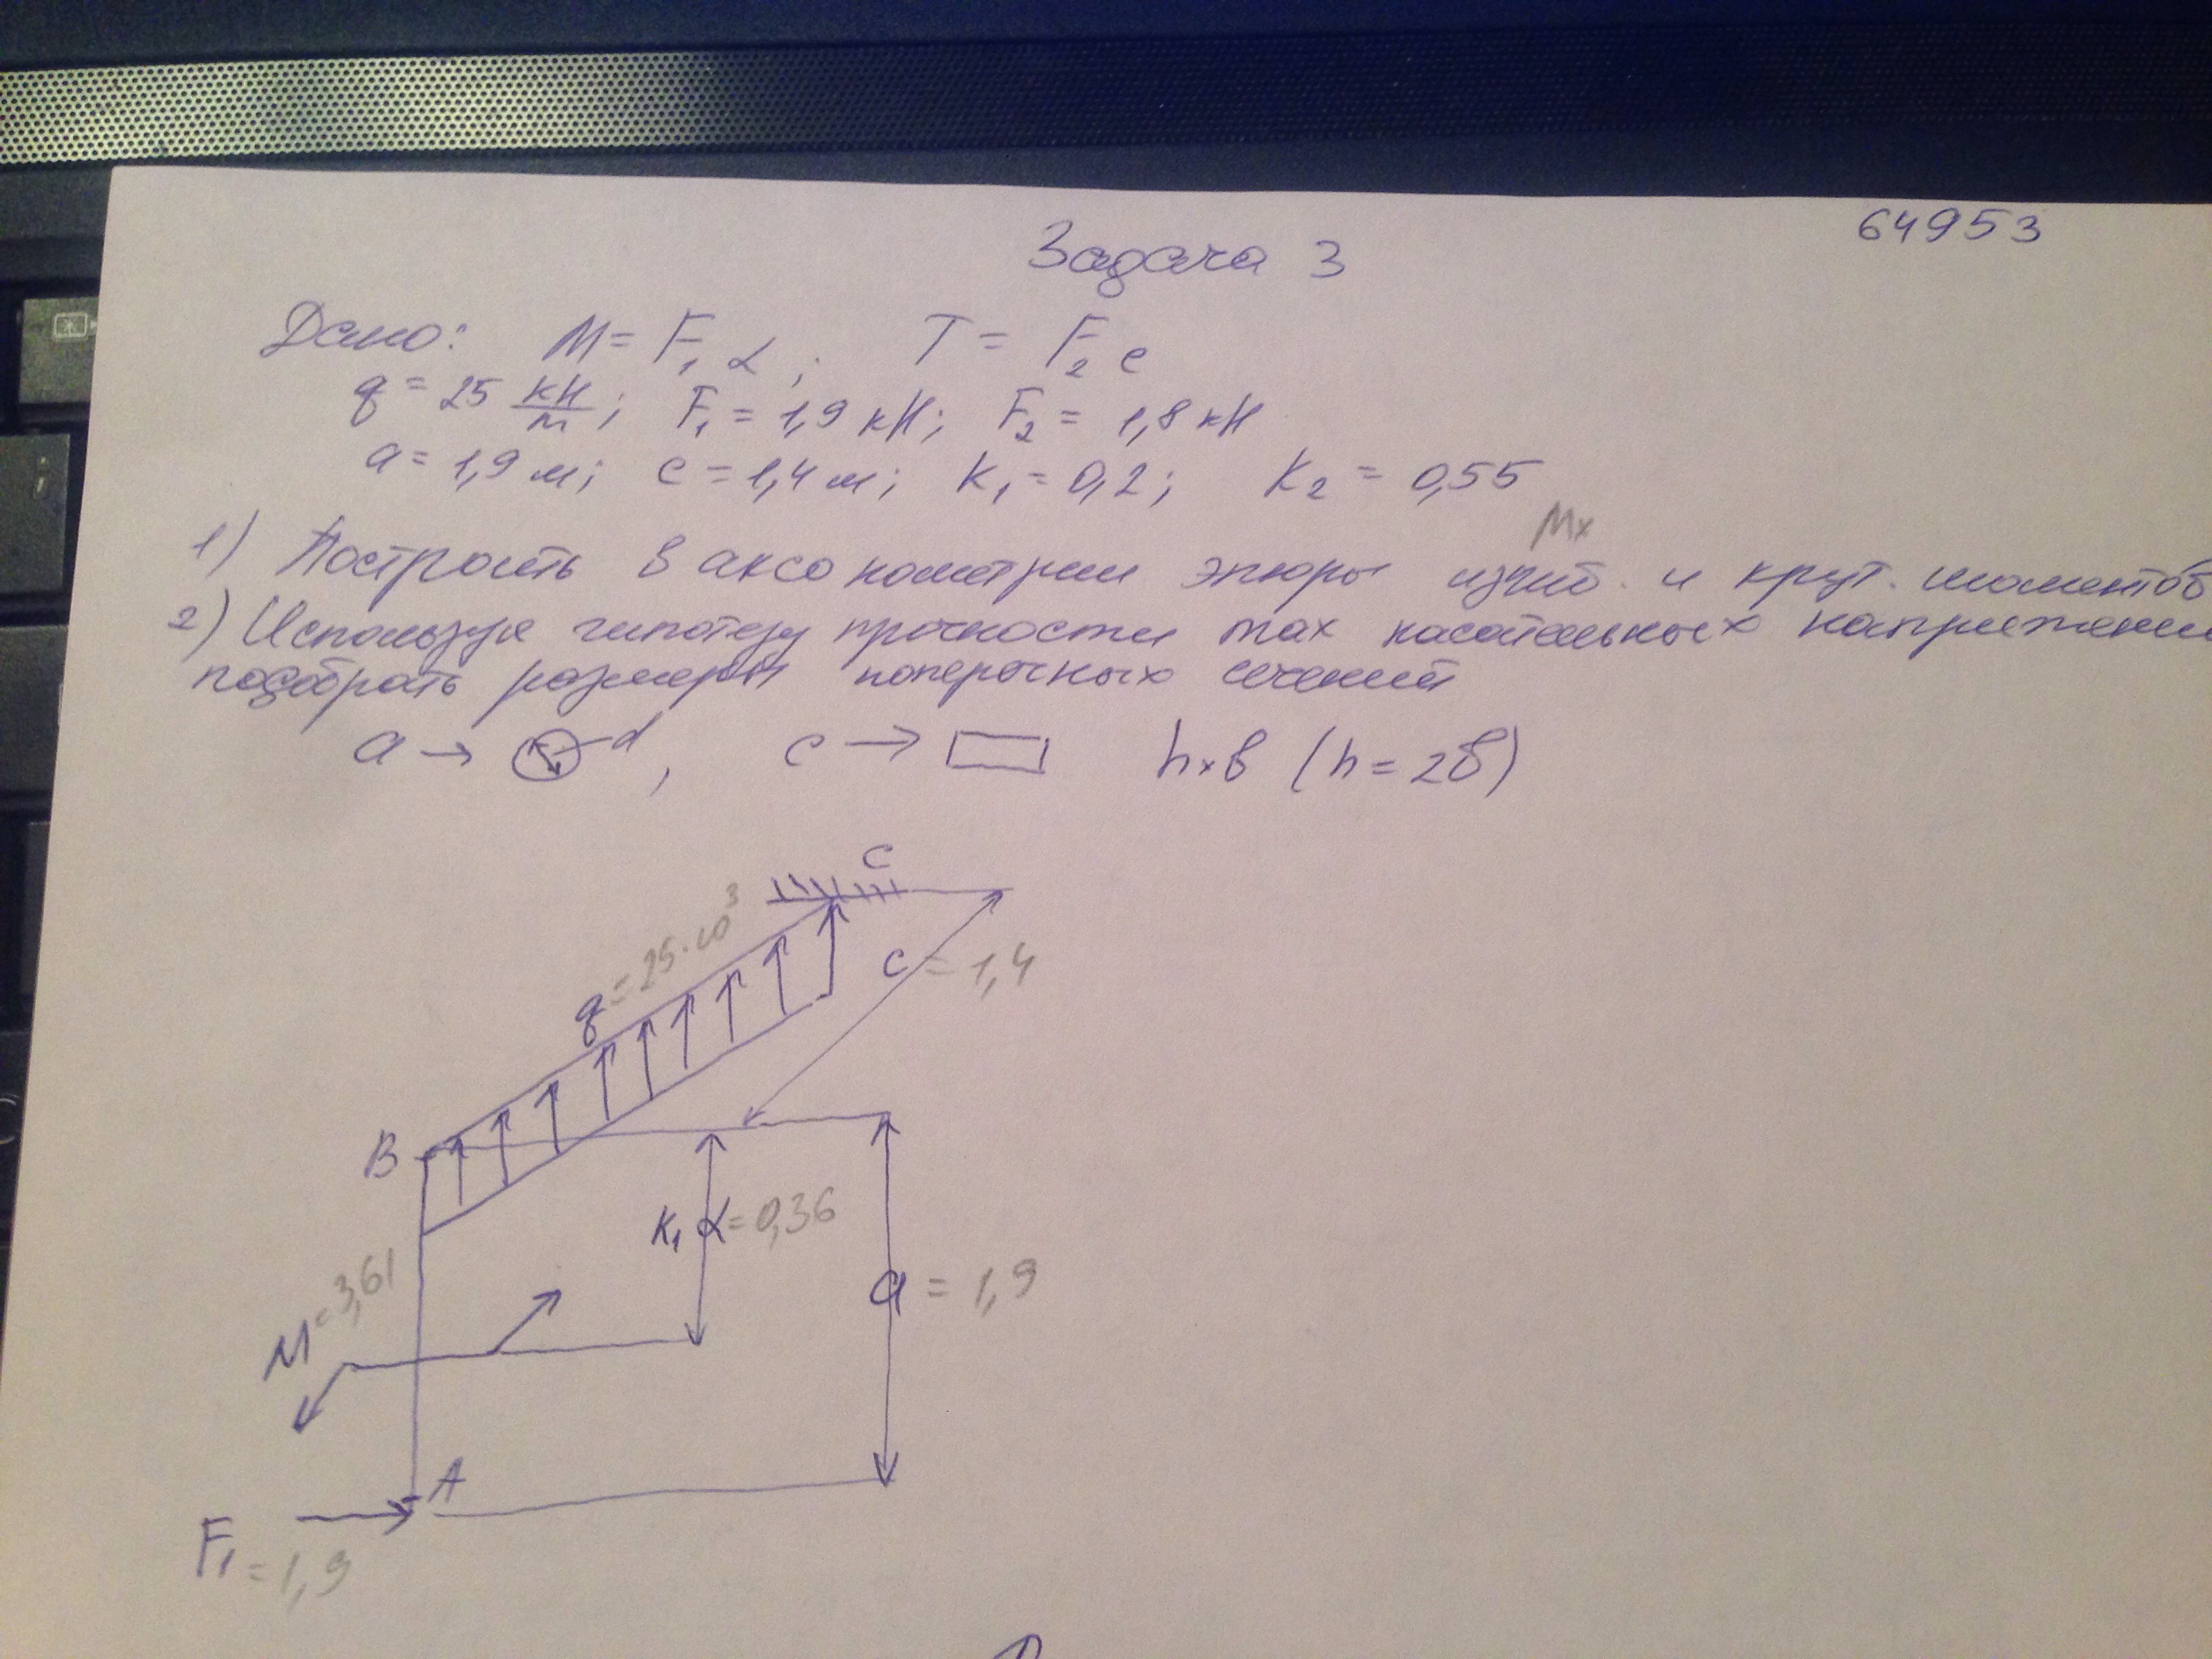 64953
Задача 3
Дано: M = F₁ a; T = F₂ c
q = 25 кН/м; F₁ = 1,9 кН; F₂ = 1,8 кН
a = 1,9 м; c = 1,4 м; K₁ = 0,2; K₂ = 0,55
Mx
1) Построить в аксонометрии эпюры изгиб. и крут. моментов
2) Используя гипотезу прочности max касательных напряжени
подобрать размеры поперечных сечений
a → d, c → h×b (h = 2b)
C
q = 25·10³
c = 1,4
B
K₁ a = 0,36
a = 1,9
M = 3,61
A
F₁ = 1,9